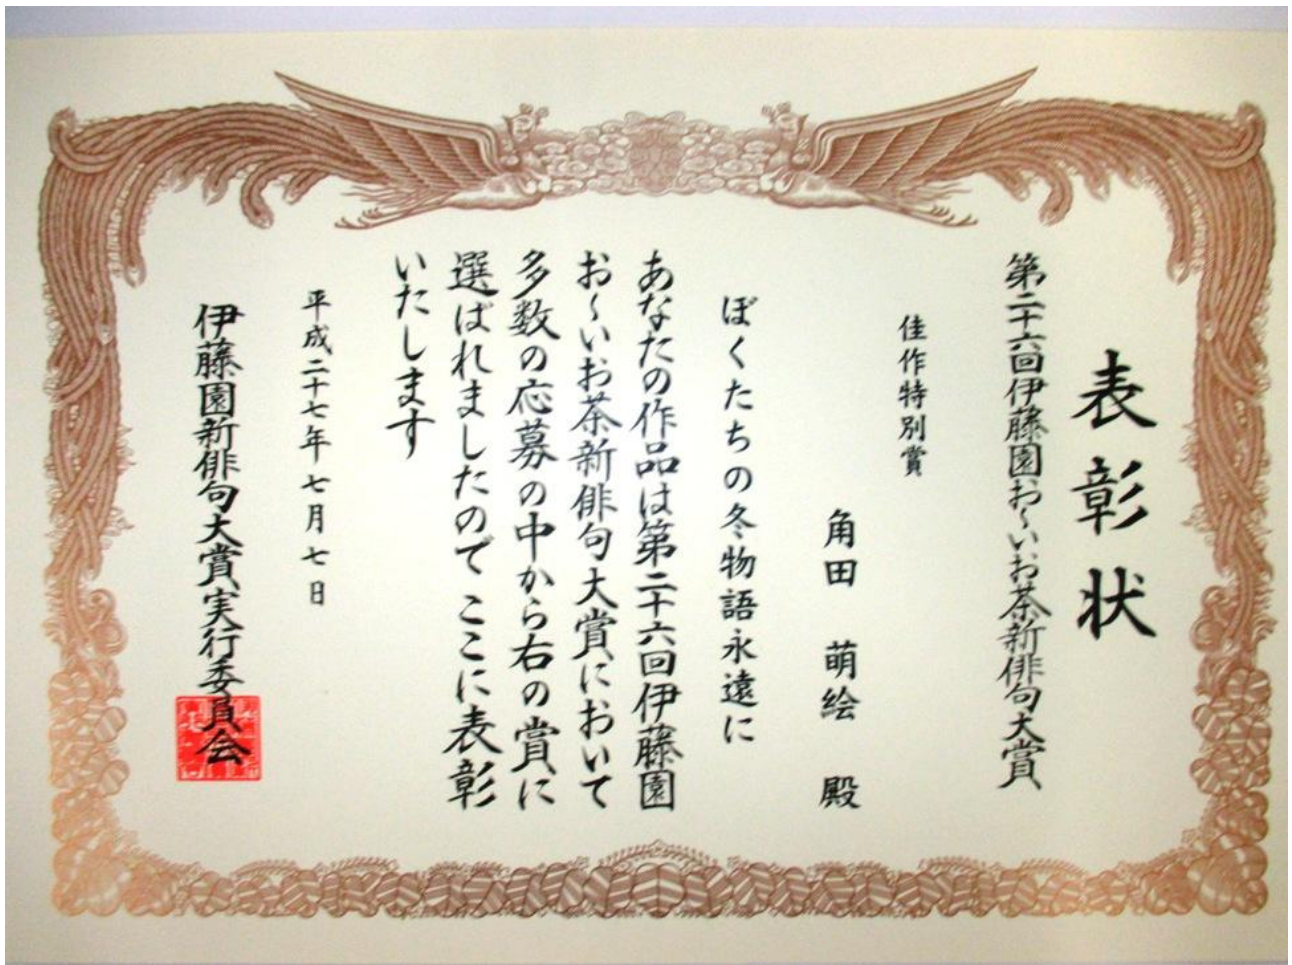 表彰状
第二十六回伊藤園お〜いお茶新俳句大賞
佳作特別賞
角田 萌絵 殿
ぼくたちの冬物語永遠に
あなたの作品は第二十六回伊藤園
お〜いお茶新俳句大賞において
多数の応募の中から右の賞に
選ばれましたので ここに表彰
いたします
平成二十七年七月七日
伊藤園新俳句大賞実行委員会